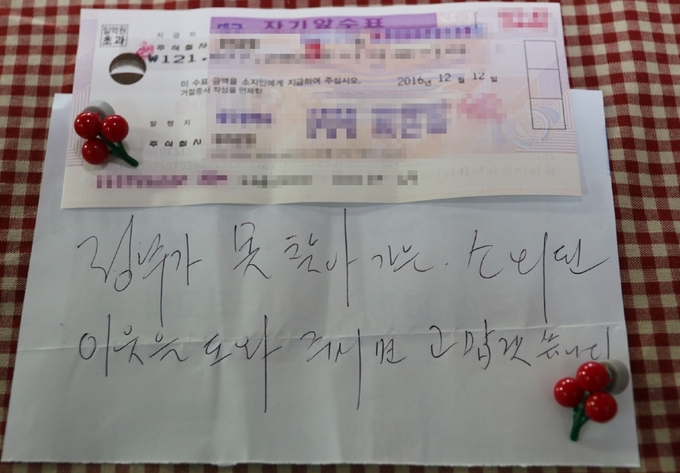 일억원
초과
대구 자기앞수표
지급지
주식회사
₩121.
이 수표 금액을 소지인에게 지급하여 주십시오.
거절증서 작성을 면제함.
2016년 12월 12일
발행지
주식회사
정부가 못 찾아 가는. 소외된
이웃을 도와 주시면 고맙겠습니다